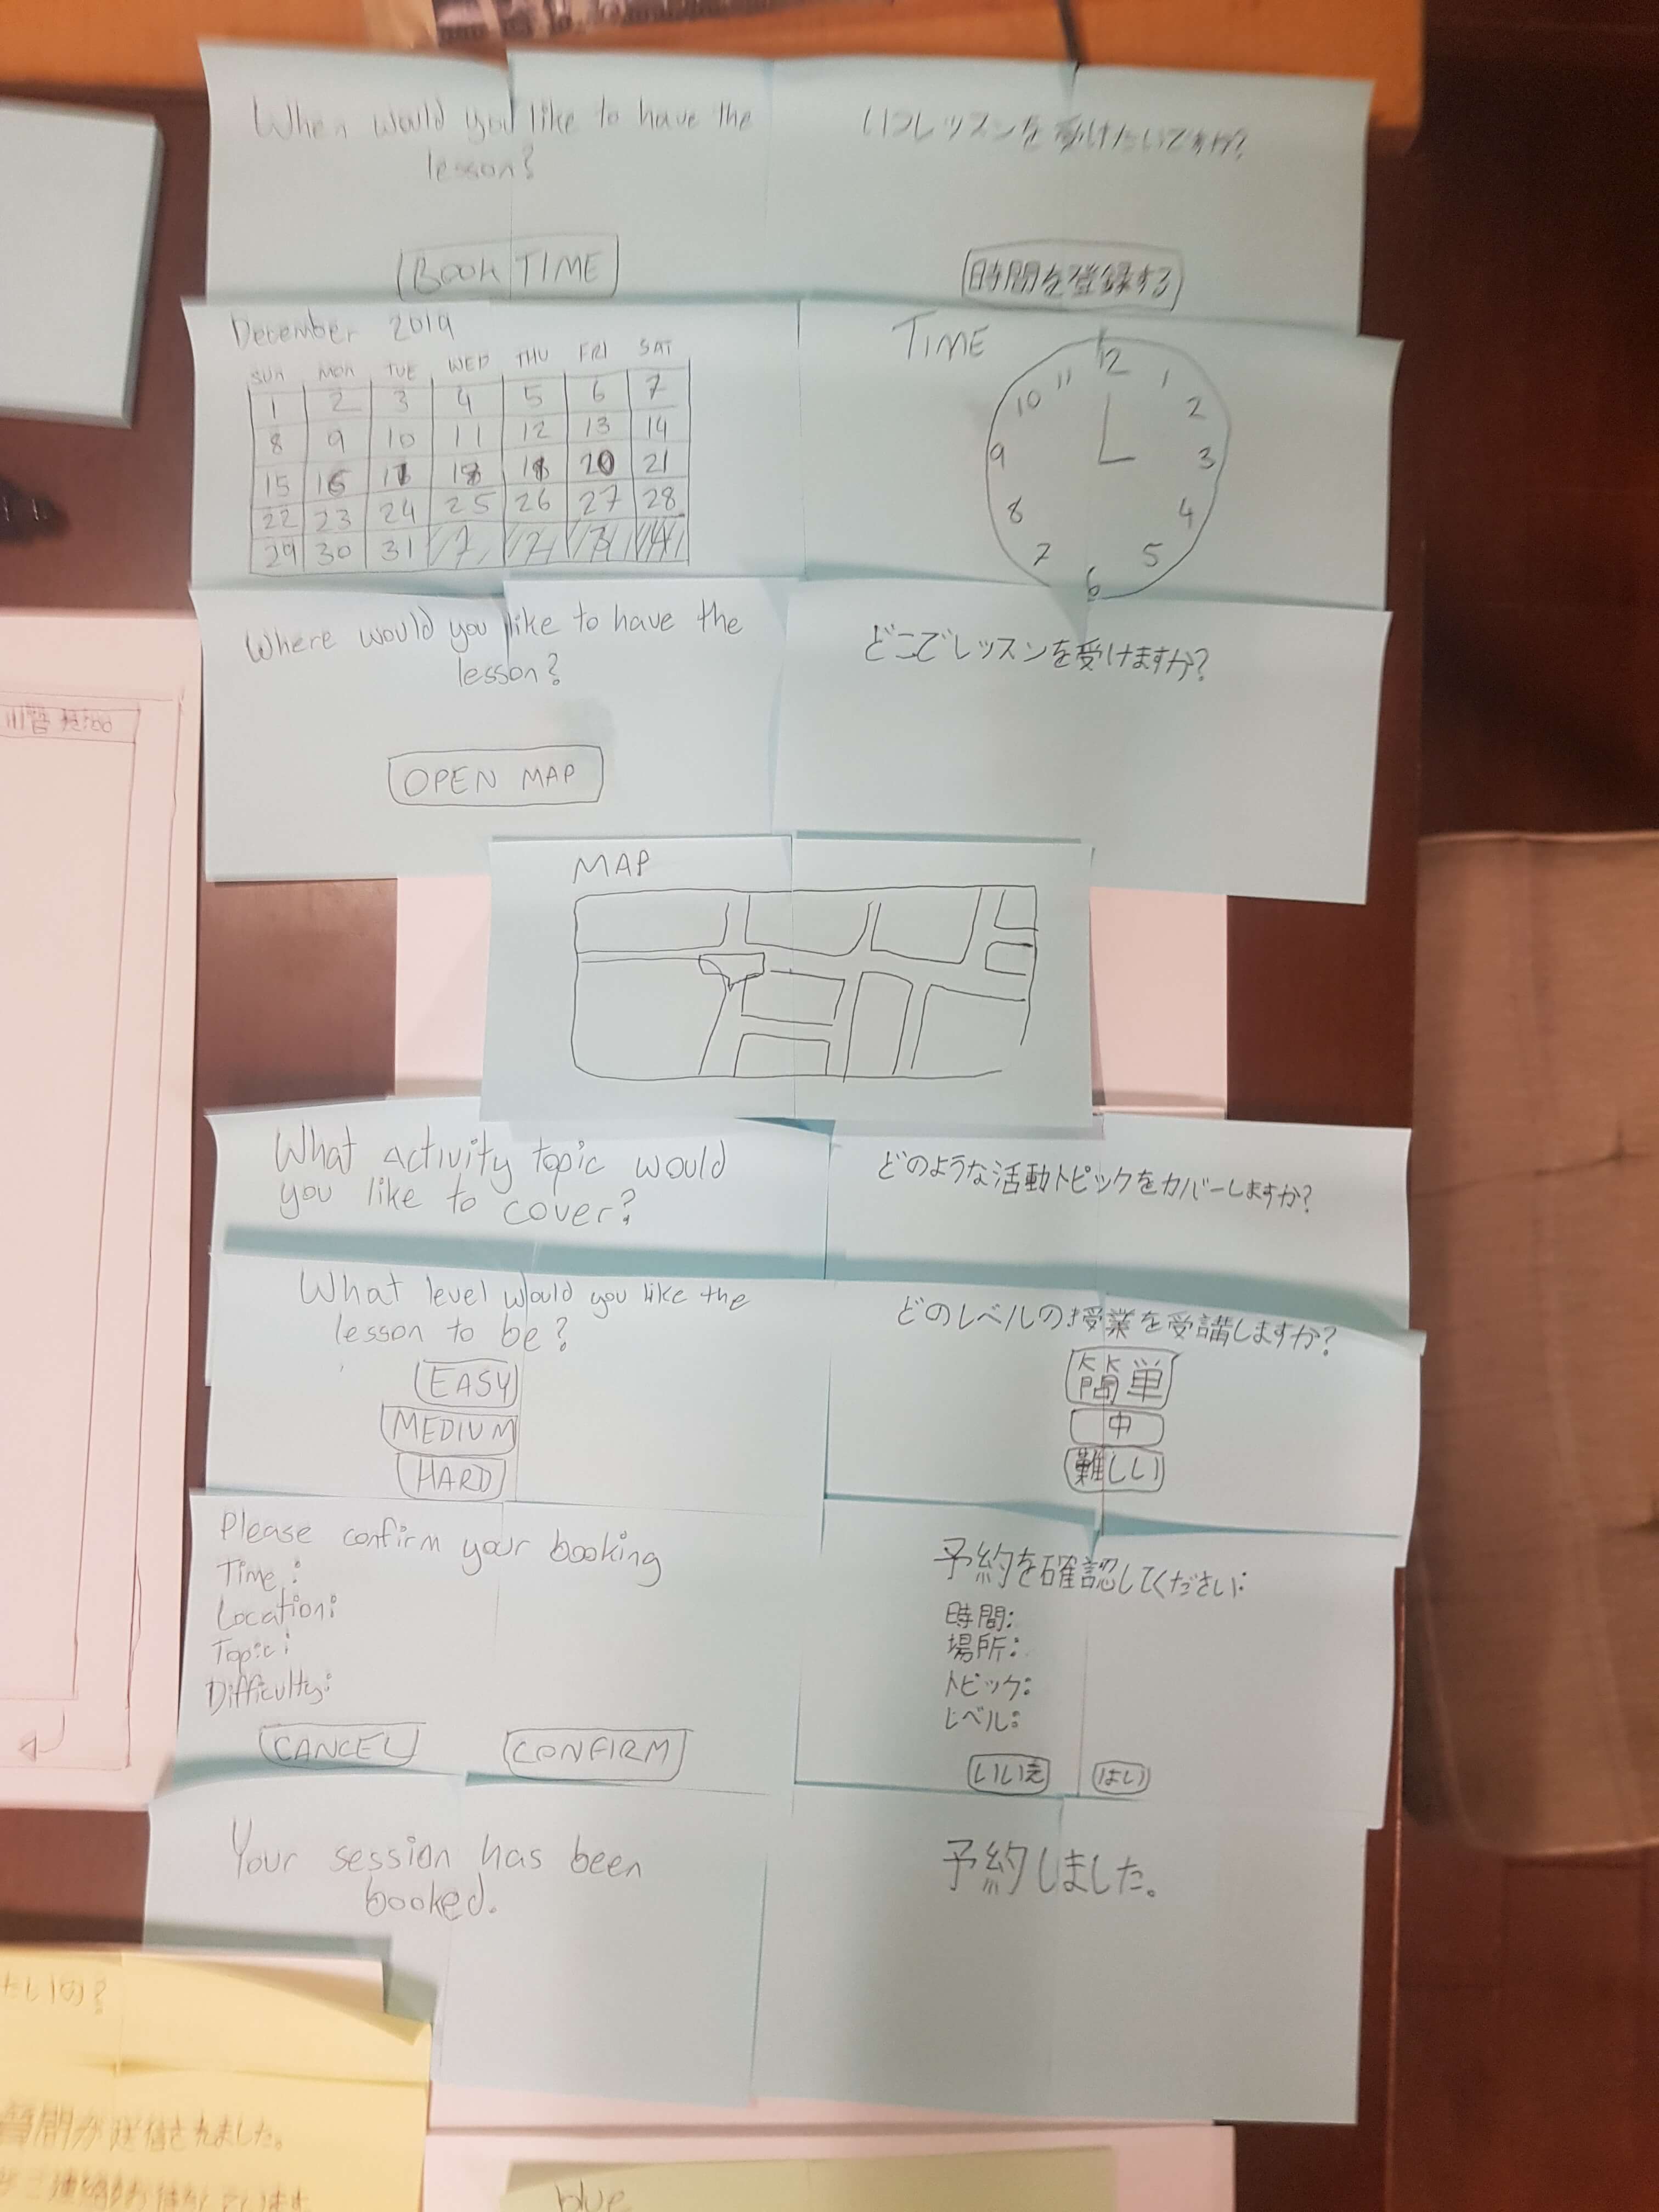 When would you like to have the
lesson?
BOOK TIME
いつレッスンを受けたいですか?
時間を登録する
December 2019
SUN MON TUE WED THU FRI SAT
1 2 3 4 5 6 7
8 9 10 11 12 13 14
15 16 17 18 19 20 21
22 23 24 25 26 27 28
29 30 31 1 2 3 4
TIME
12
11 1
10 2
9 3
8 4
7 5
6
Where would you like to have the
lesson?
OPEN MAP
どこでレッスンを受けますか?
MAP
What activity topic would
you like to cover?
どのような活動トピックをカバーしますか?
What level would you like the
lesson to be?
EASY
MEDIUM
HARD
どのレベルの授業を受講しますか?
簡単
中
難しい
Please confirm your booking
Time:
Location:
Topic:
Difficulty:
CANCEL CONFIRM
予約を確認してください:
時間:
場所:
トピック:
レベル:
いいえ はい
Your session has been
booked.
予約しました。
たいの?
質問が送信されました。
blue